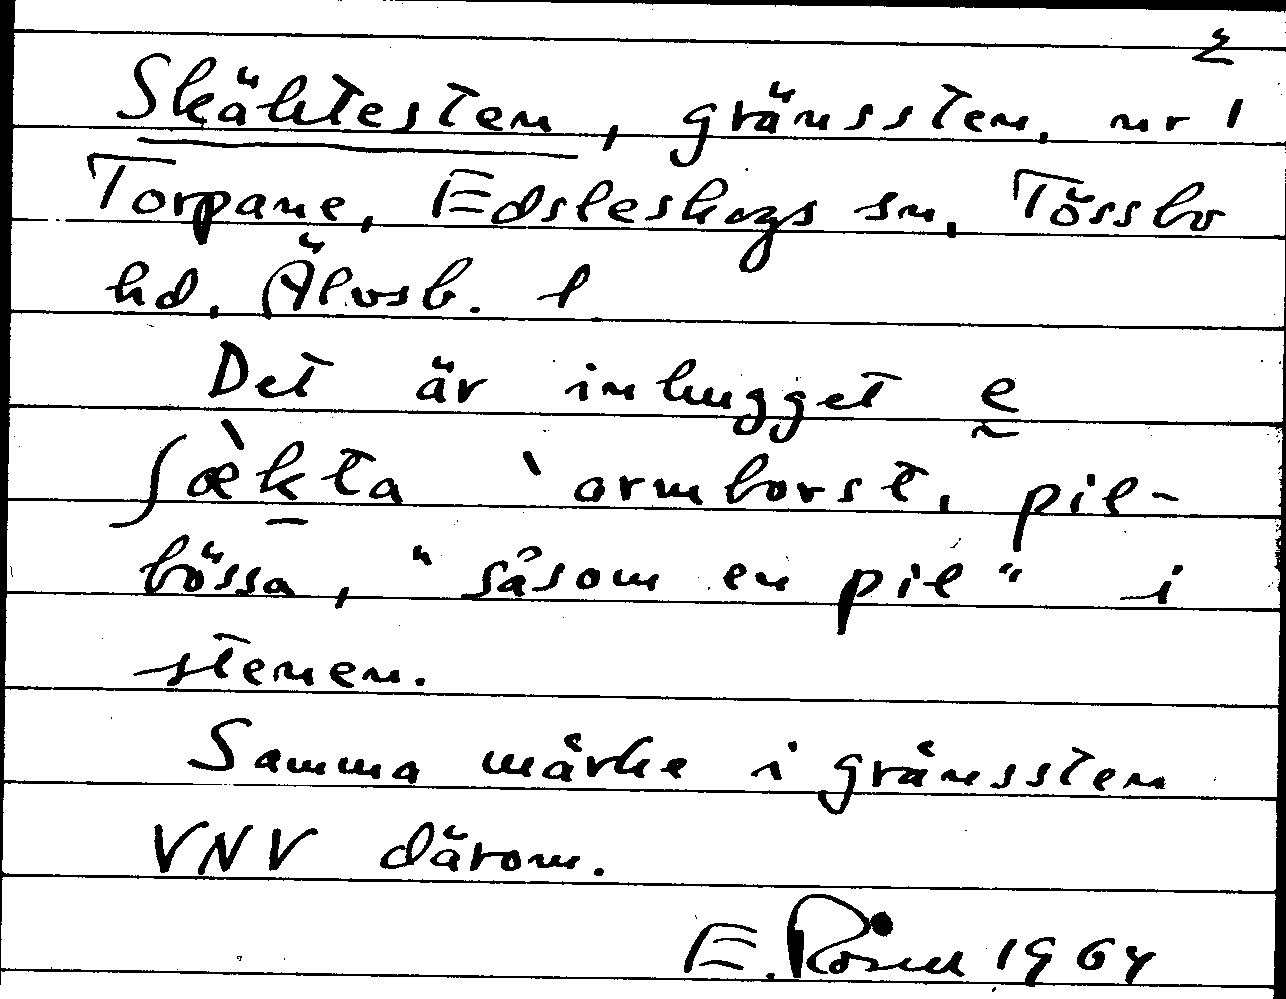 2
Skäktesten, gränssten, nr 1
Torpane, Edsleskogs sn, Tössbo
hd, Älvsb. l
Det är inhugget ḛ
ʃæ̀k̠ta `armborst, pil-
bössa, "såsom en pil" i
stenen.
Samma märke i gränssten
VNV därom.
E. Rosén 1964